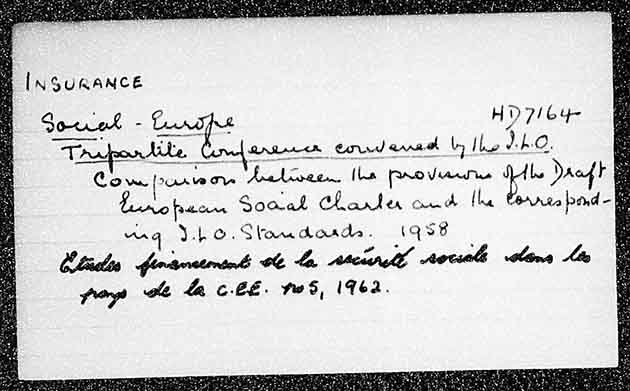 INSURANCE
Social - Europe HD7164
Tripartite Conference convened by the I.L.O.
Comparison between the provisions of the Draft
European Social Charter and the correspond-
ing I.L.O. Standards. 1958
Etudes financement de la sécurité sociale dans les
pays de la C.E.E. no 5, 1962.